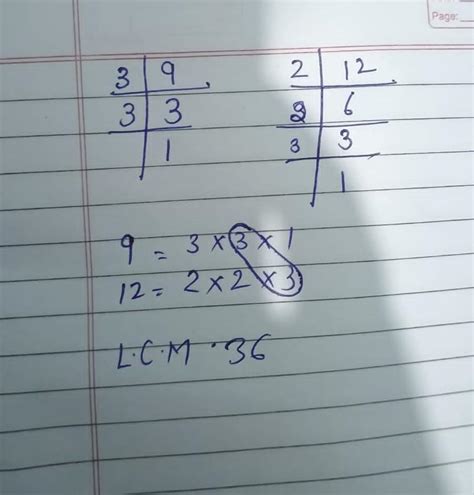 Page:
3 | 9
3 | 3
| 1
2 | 12
2 | 6
3 | 3
| 1
9 = 3 × 3 × 1
12 = 2 × 2 × 3
L.C.M . 36